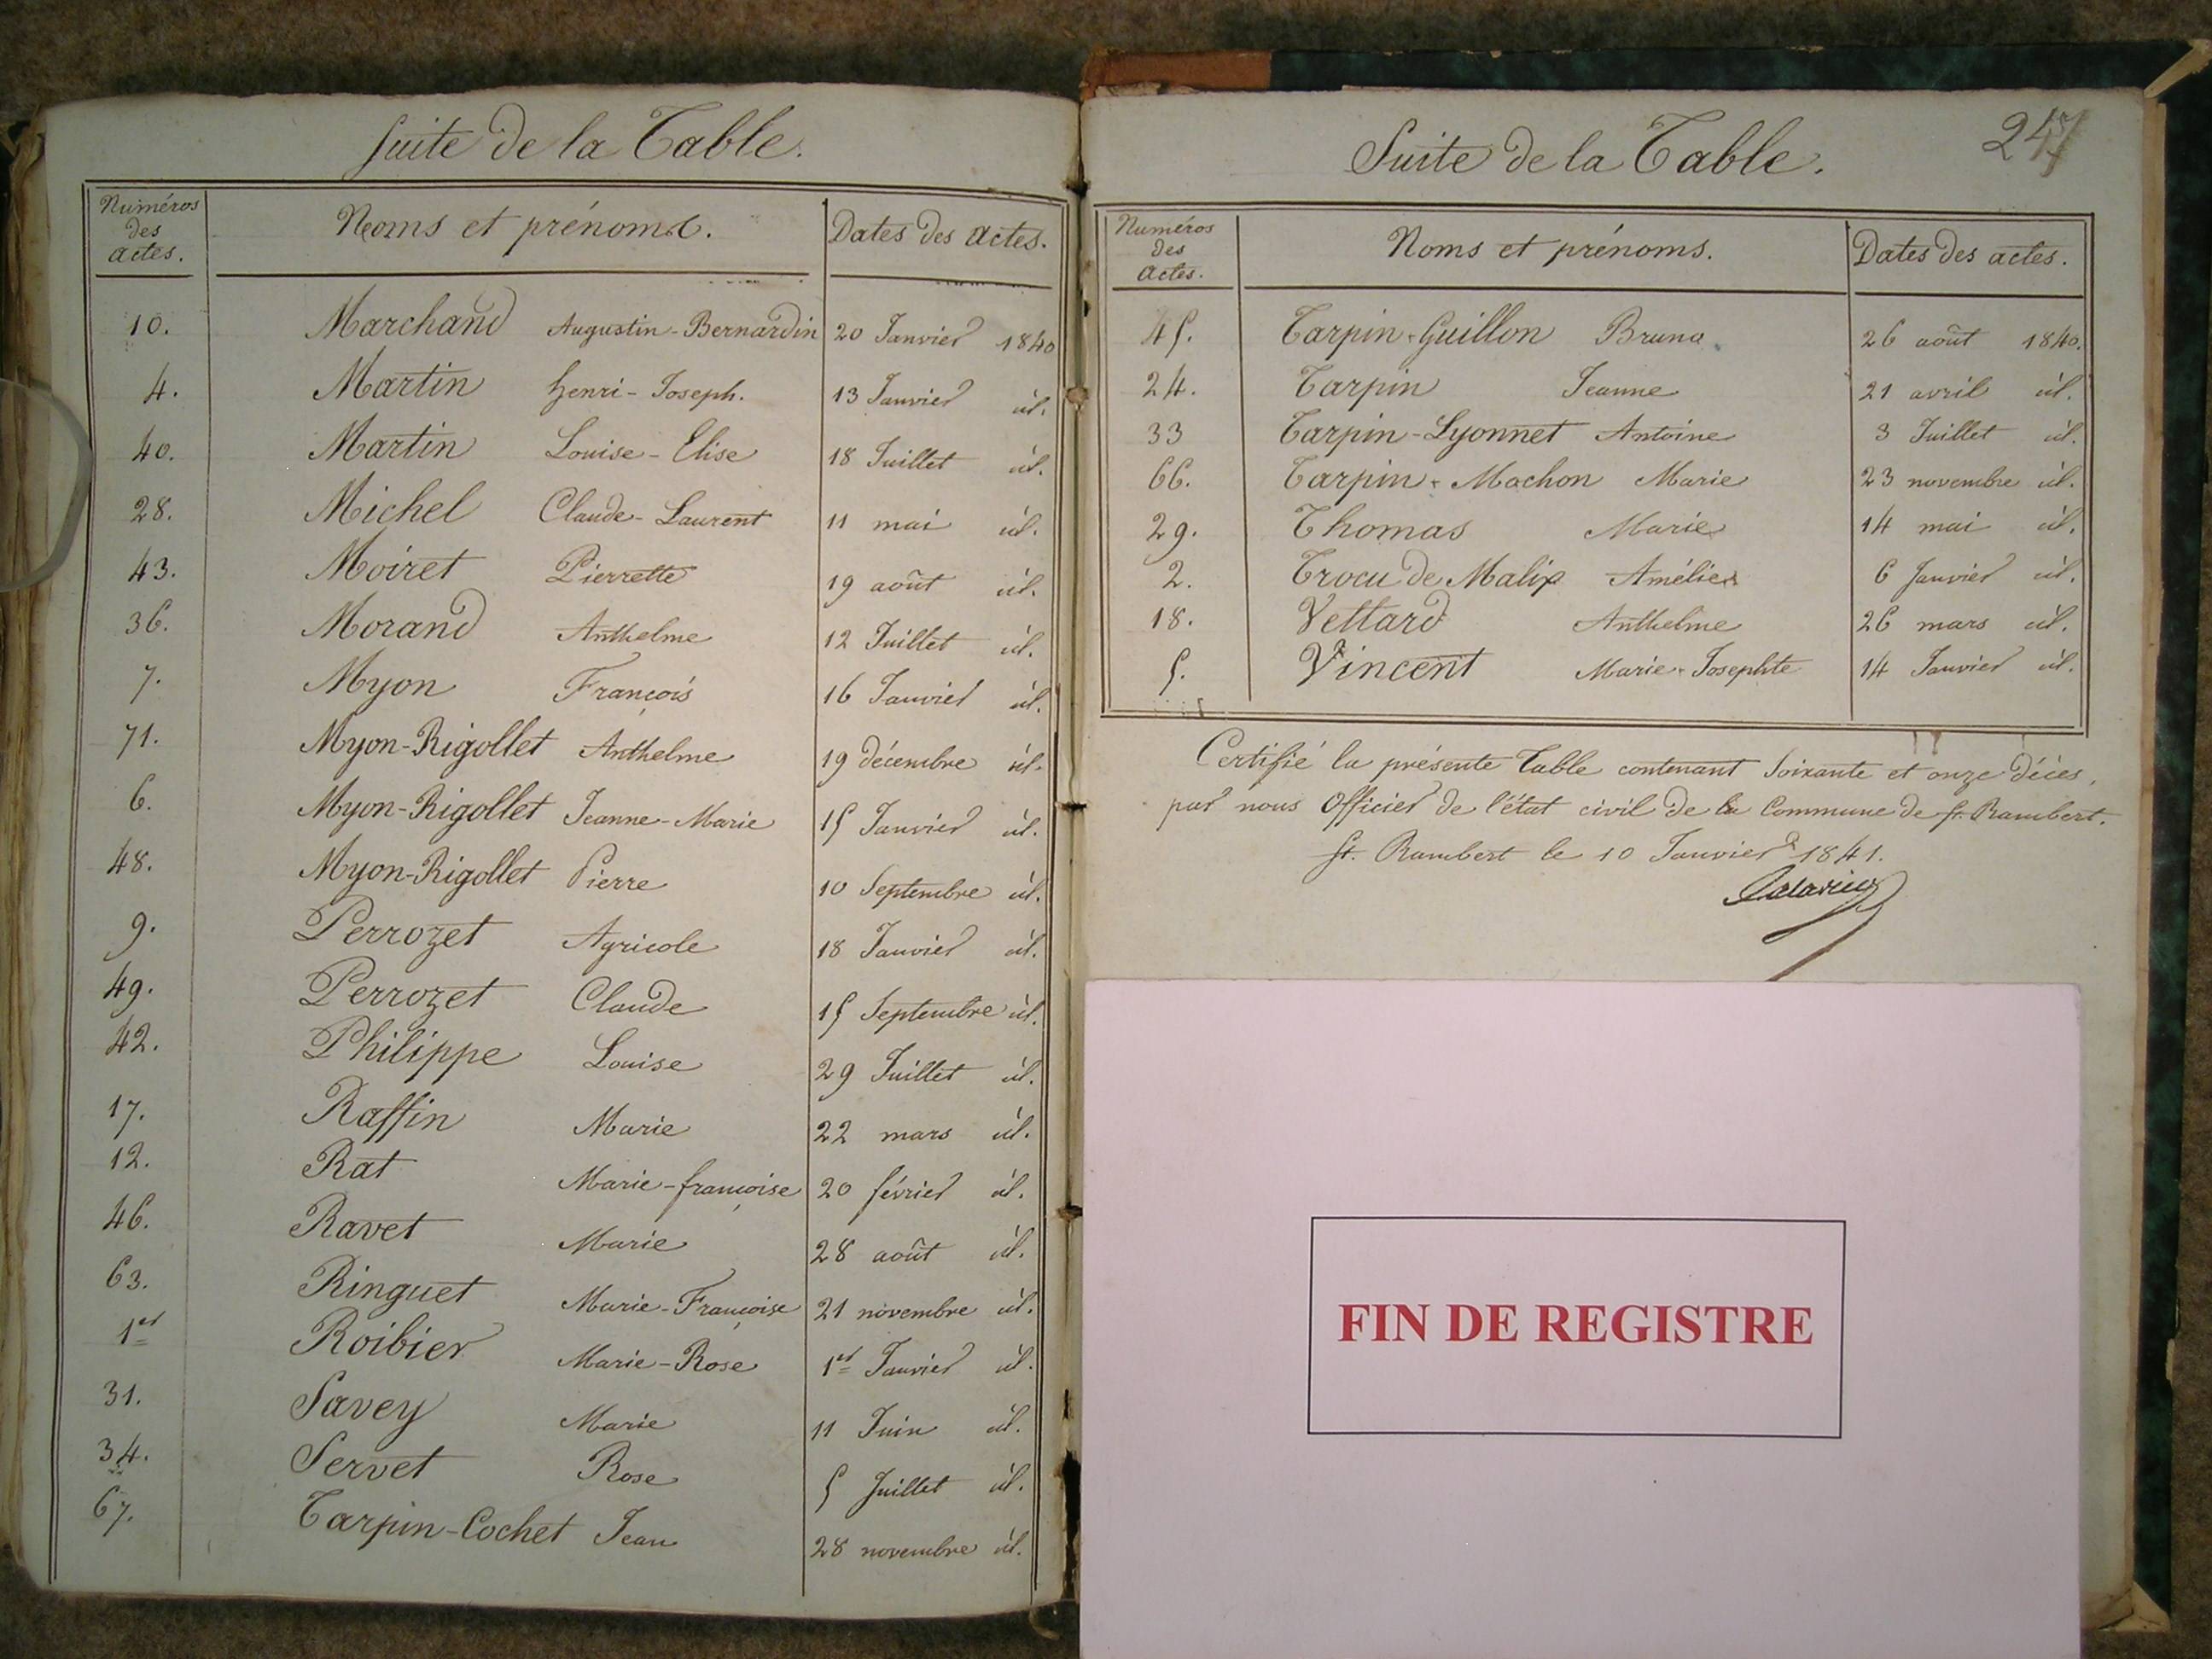 Suite de la Table.
Numéros des actes. Noms et prénoms. Dates des actes.
10. Marchand Augustin-Bernardin 20 Janvier 1840
4. Martin henri-Joseph. 13 Janvier id.
40. Martin Louise-Elise 18 Juillet id.
28. Michel Claude-Laurent 11 mai id.
43. Moiret Pierrette 19 août id.
36. Morand Anthelme 12 Juillet id.
7. Myon François 16 Janvier id.
71. Myon-Rigollet Anthelme 19 décembre id.
6. Myon-Rigollet Jeanne-Marie 15 Janvier id.
48. Myon-Rigollet Pierre 10 Septembre id.
9. Perrozet Agricole 18 Janvier id.
49. Perrozet Claude 15 Septembre id.
42. Philippe Louise 29 Juillet id.
17. Raffin Marie 22 mars id.
12. Rat Marie-françoise 20 février id.
46. Ravet Marie 28 août id.
63. Ringuet Marie-Françoise 21 novembre id.
1er Roibier Marie-Rose 1er Janvier id.
31. Savey Marie 11 Juin id.
34. Servet Rose 5 Juillet id.
67. Tarpin-Cochet Jean 28 novembre id.
Suite de la Table.
Numéros des actes. Noms et prénoms. Dates des actes.
45. Tarpin-Guillon Bruno 26 août 1840.
24. Tarpin Jeanne 21 avril id.
33 Tarpin-Lyonnet Antoine 3 Juillet id.
66. Tarpin-Mochon Marie 23 novembre id.
29. Thomas Marie 14 mai id.
2. Trocu de Malix Amélie 6 Janvier id.
18. Vettard Anthelme 26 mars id.
5. Vincent Marie-Josephte 14 Janvier id.
Certifié la présente Table contenant Soixante et onze décès,
par nous Officier de l'état civil de la Commune de St. Rambert.
St. Rambert le 10 Janvier 1841.
FIN DE REGISTRE